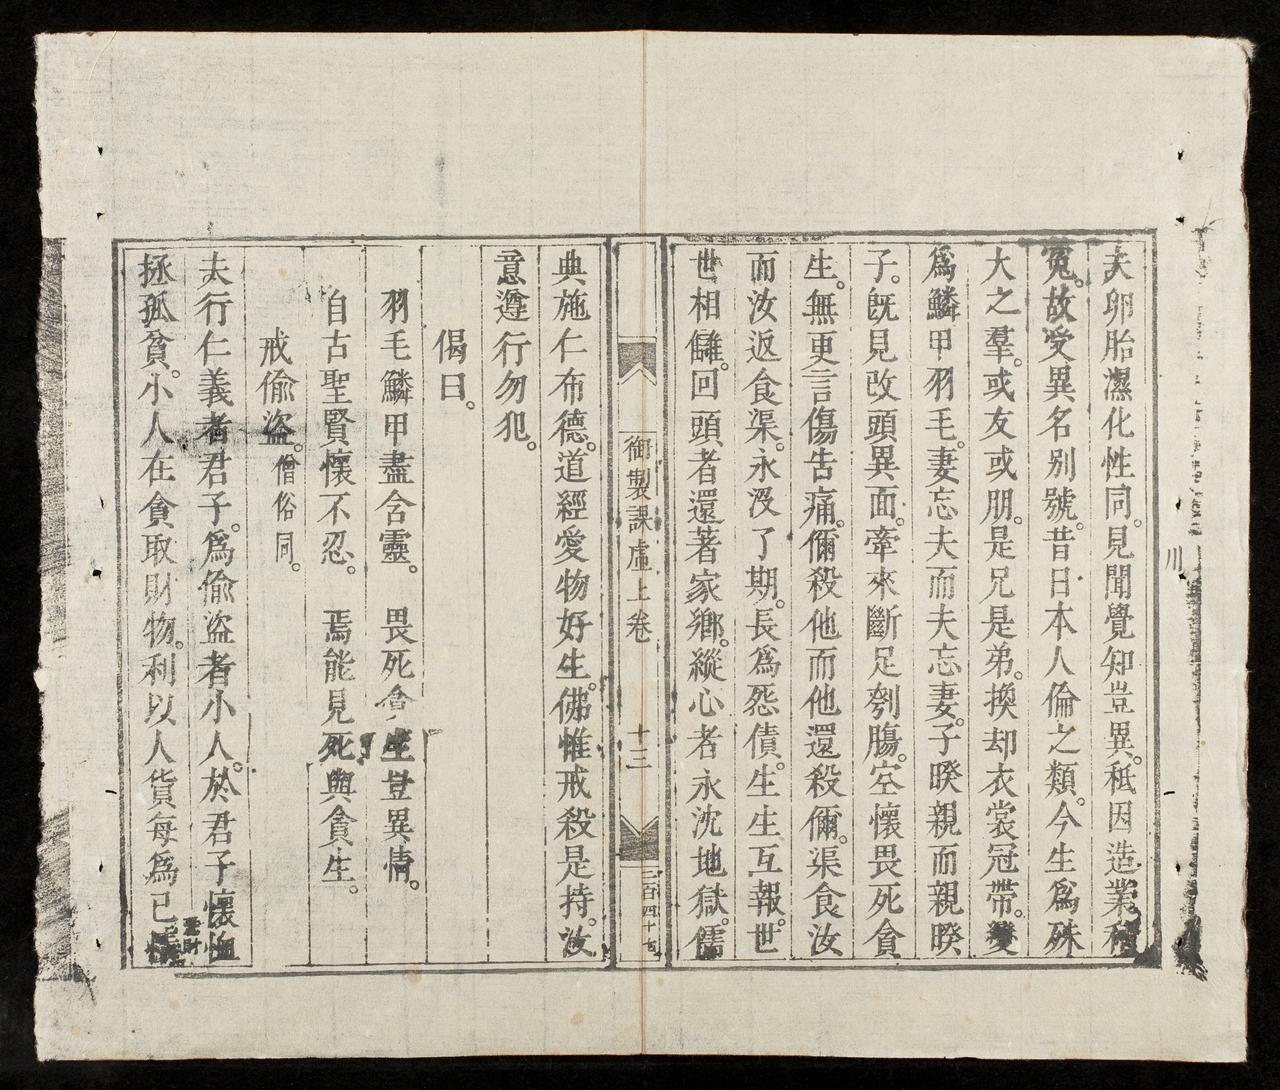 夫卵胎濕化性同。見聞覺知豈異。秪因造業積
寃。故受異名别號。昔日本人倫之類。今生爲殊
大之羣。或友或朋。是兄是弟。換却衣裳冠帶。變
爲鱗甲羽毛。妻忘夫而夫忘妻。子暌親而親暌
子。旣見改頭異面。牽來斷足刳膓。空懷畏死貪
生。無更言傷告痛。儞殺他而他還殺儞。渠食汝
而汝返食渠。永沒了期。長爲怨債。生生互報。世
世相讎。回頭者還著家鄉。縱心者永沈地獄。儒
御製課虛上卷 十三
二百四十五
典施仁布德。道經愛物好生。佛惟戒殺是持。汝
意遵行勿犯。
偈曰。
羽毛鱗甲盡含靈。 畏死貪生豈異情。
自古聖賢懷不忍。 焉能見死與貪生。
戒偷盜。僧俗同。
夫行仁義者君子。爲偷盜者小人。於君子懷恤
拯孤貧。小人在貪取財物。利以人貨每爲己
川